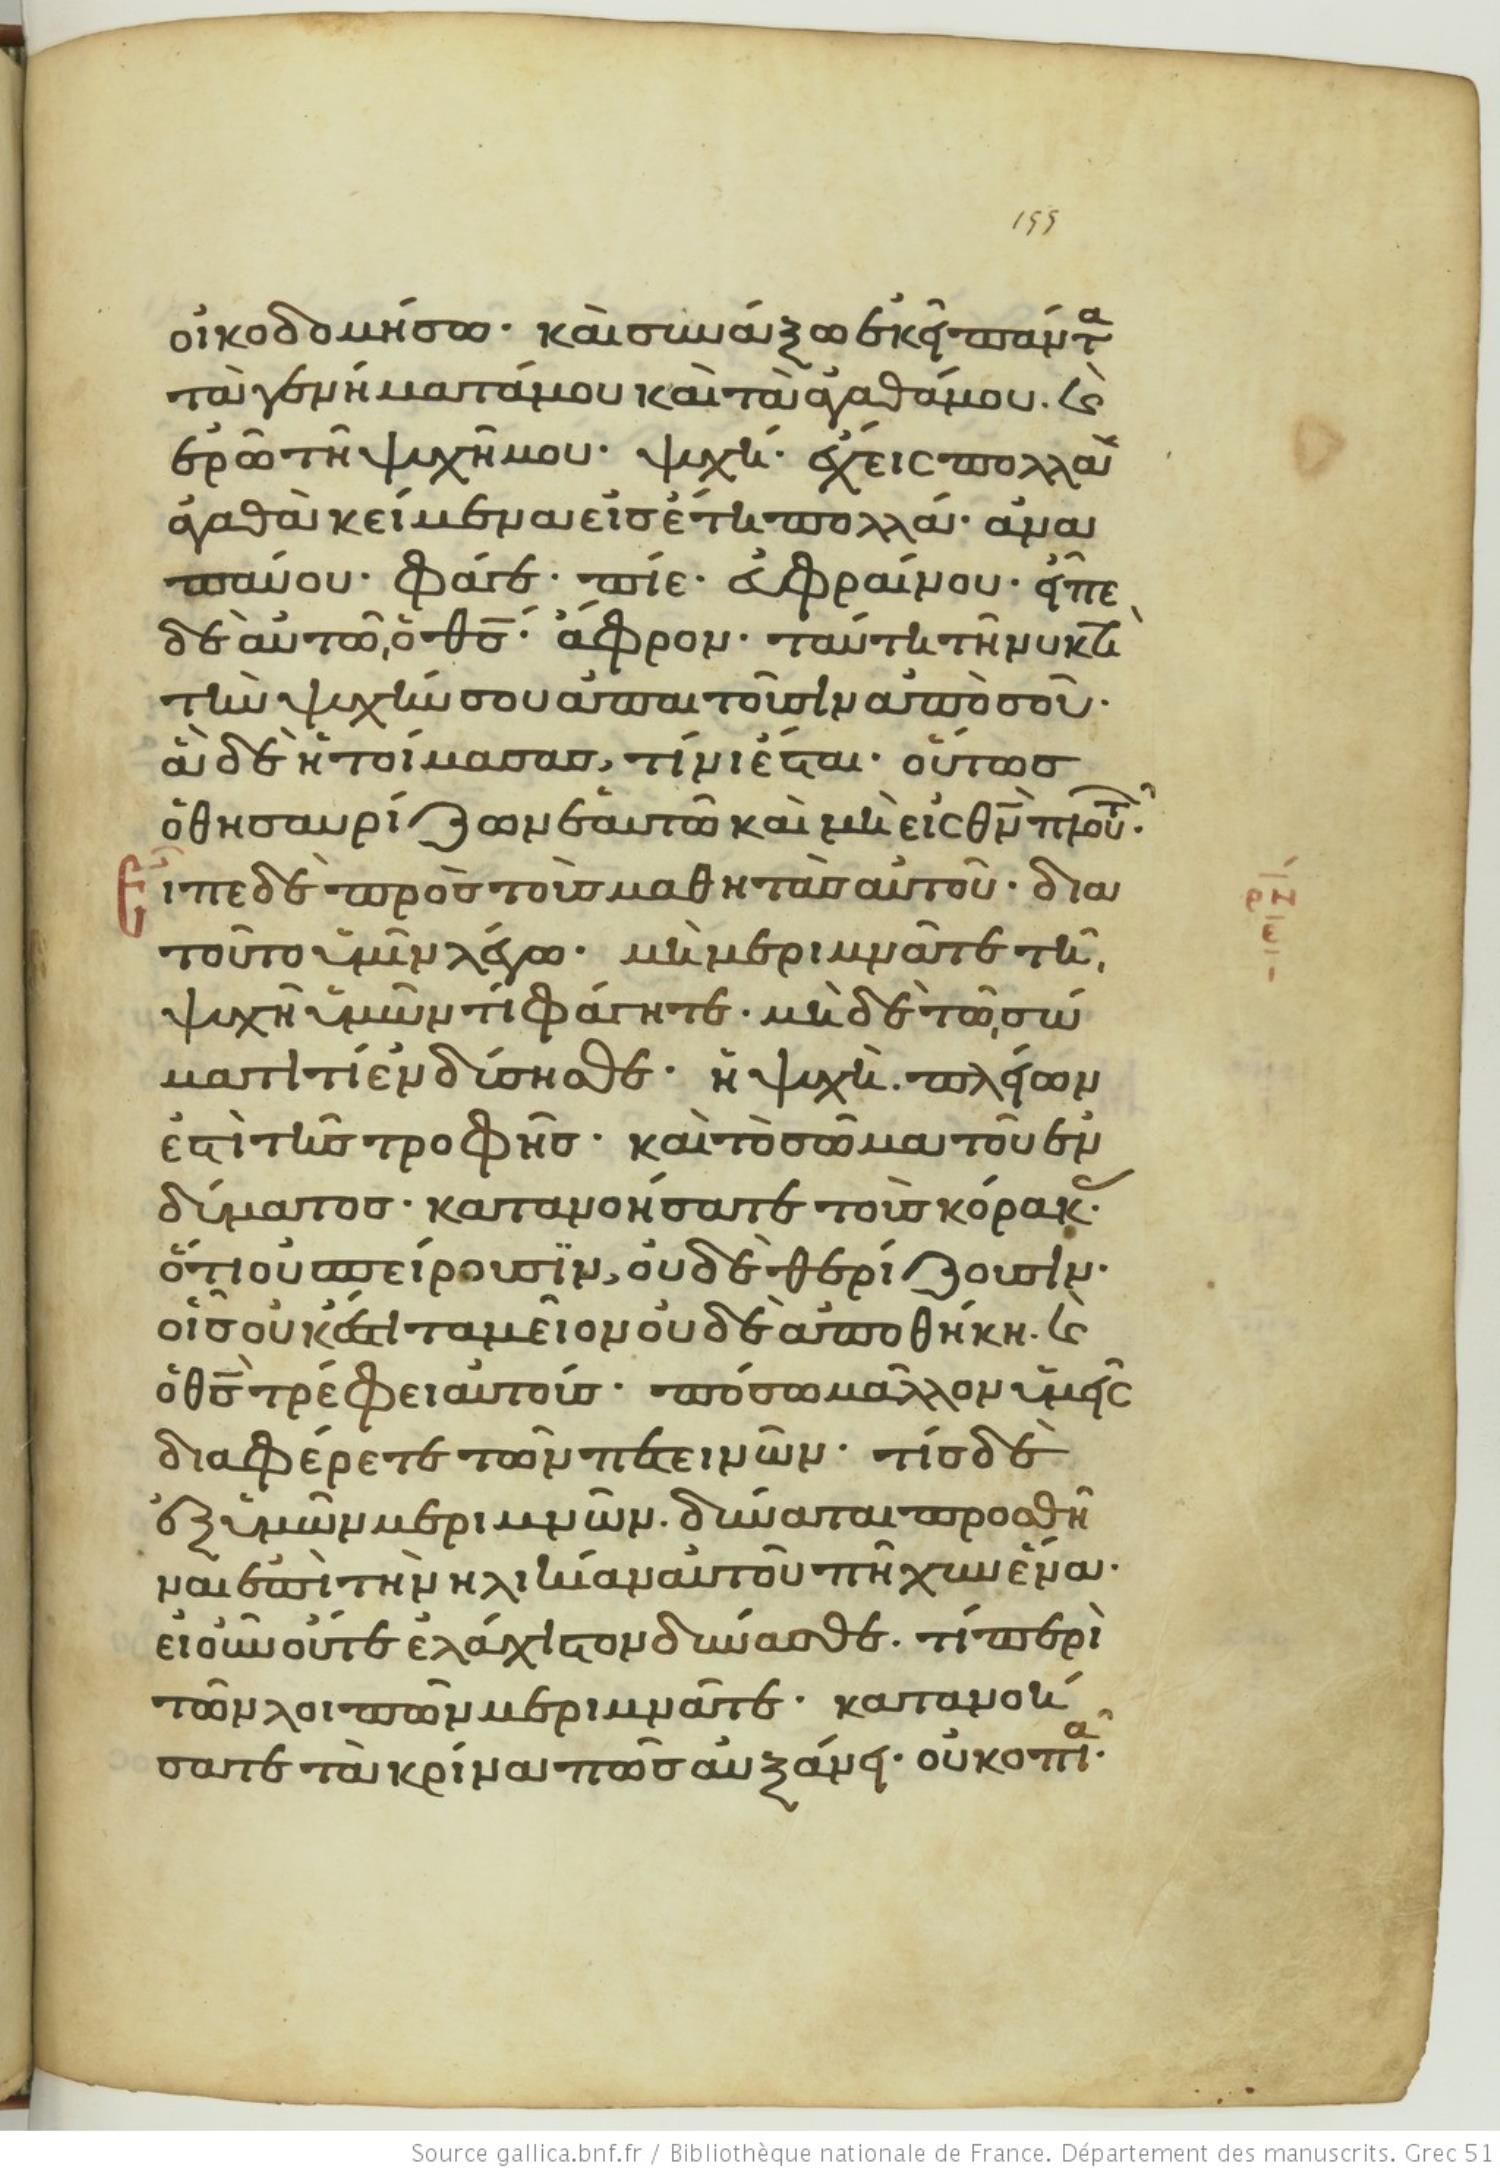 155
οἰκοδομήσω· καὶ συνάξω ἐκεῖ πάντα
τὰ γενήματά μου καὶ τὰ ἀγαθά μου. καὶ
ἐρῶ τῆ ψυχῆ μου· ψυχή· ἔχεις πολλὰ
ἀγαθὰ κείμενα εἰς ἔτη πολλά· ἀνα
παύου· φάγε· πίε· εὐφραίνου· εἶπε
δὲ αὐτῶ, ὁ θς̅· ἄφρον· ταύτη τῆ νυκτὶ
τὴν ψυχήν σου ἀπαιτοῦσιν ἀπὸ σοῦ·
ἃ δὲ ἡτοίμασας, τίνι ἔσται· οὕτως
ὁ θησαυρίζων ἑαυτῶ καὶ μὴ εἰς θν̅ πλουτῶν·
Εἶπε δὲ πρὸς τοὺς μαθητὰς αὐτοῦ· δια
τοῦτο ὑμῖν λέγω· μὴ μεριμνᾶτε τῆ,
ψυχῆ ὑμῶν τί φάγητε· μὴ δὲ τῶ, σώ
ματι τί ἐνδύσησθε· ἡ ψυχὴ. πλεῖον
ἐστὶ τῆς τροφῆς· καὶ τὸ σῶμα τοῦ ἐν
δύματος· κατανοήσατε τοὺς κόρακας·
ὅτι οὐ σπείρουσϊν, οὐδὲ θερίζουσιν·
οἷς οὐκ ἔστι ταμεῖον οὐδὲ ἀποθήκη. καὶ
ὁ θς̅ τρέφει αὐτούς· πόσω μᾶλλον ὑμεῖς
διαφέρετε τῶν πετεινῶν· τίς δὲ
ἐξ ὑμῶν μεριμνῶν. δύναται προσθῆ
ναι ἐπὶ τὴν ηλικίαν αὐτοῦ πῆχυν ἕνα·
εἰ οὖν οὔτε ἐλάχιστον δύνασθε. τί περὶ
τῶν λοιπῶν μεριμνᾶτε· κατανοή
σατε τὰ κρίνα πῶς αὐξάνει· οὐ κοπιᾶ·
Source gallica.bnf.fr / Bibliothèque nationale de France. Département des manuscrits. Grec 51